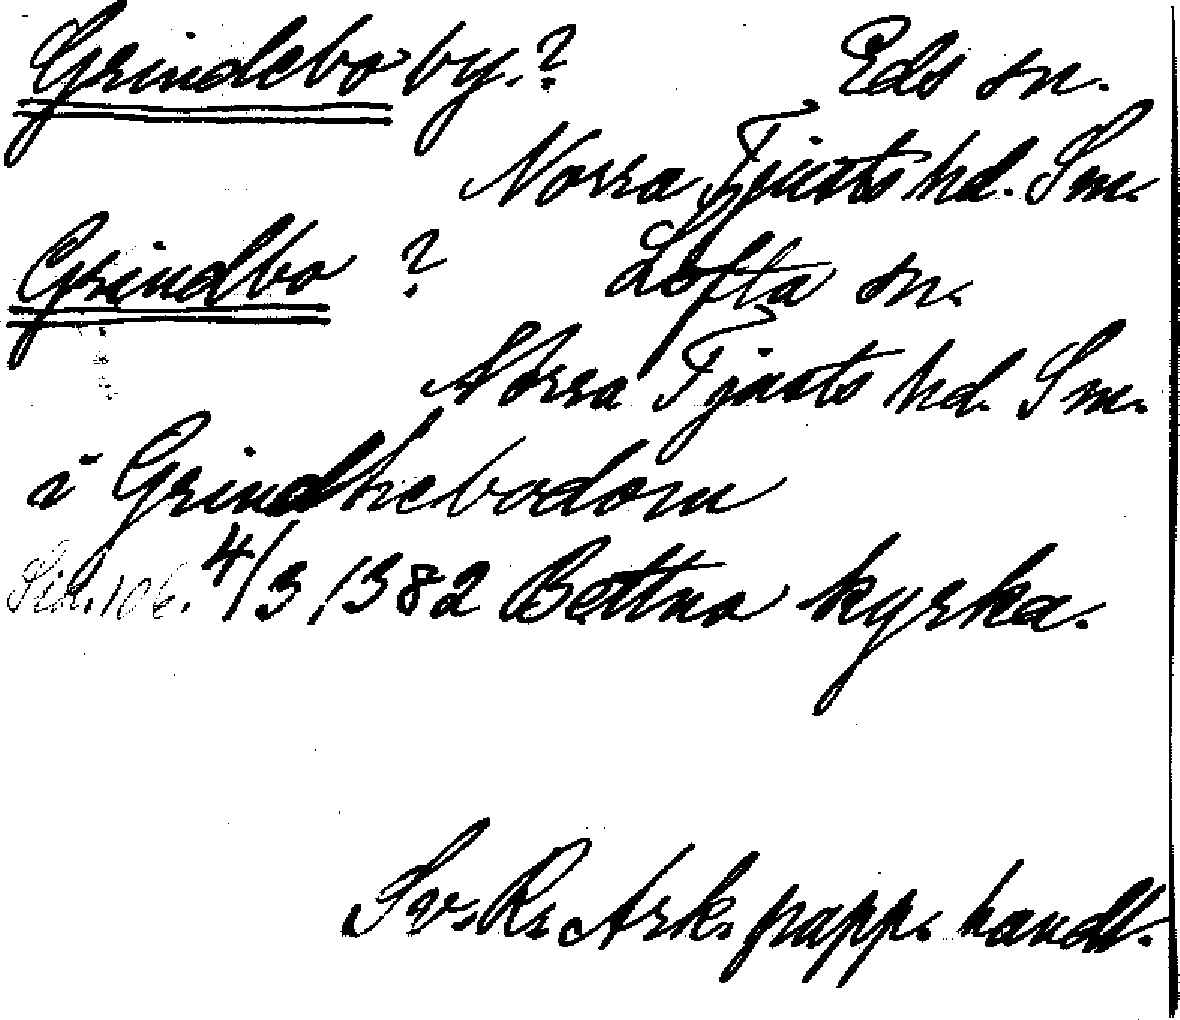 Grindebo by.? Eds sn.
Norra Tjusts hd. Sm.
Grindbo ? Lofta sn.
Norra Tjusts hd. Sm.
i Grindhebodom
Sid. 106. 4/3 1382 Bettna kyrka.
Sv. R. Ark. papp. handl.